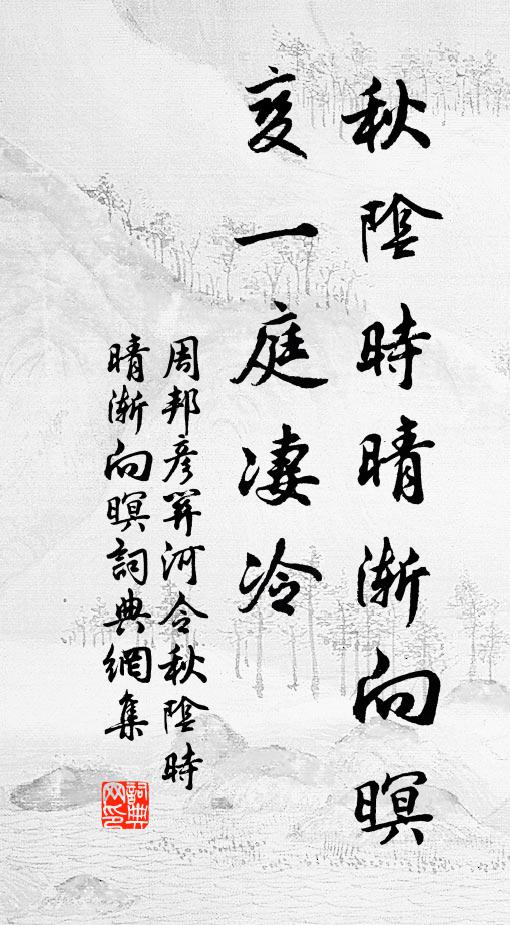 秋陰時晴漸向暝
變一庭淒冷
周邦彥關河令秋陰時
晴漸向暝詞典網集
詞典
网印